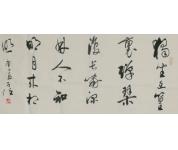 獨坐幽篁
裏彈琴
復長嘯深
林人不知
明月來相
照